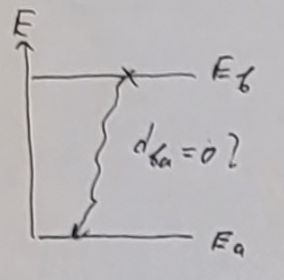 E
E_b
d_ba = 0?
E_a